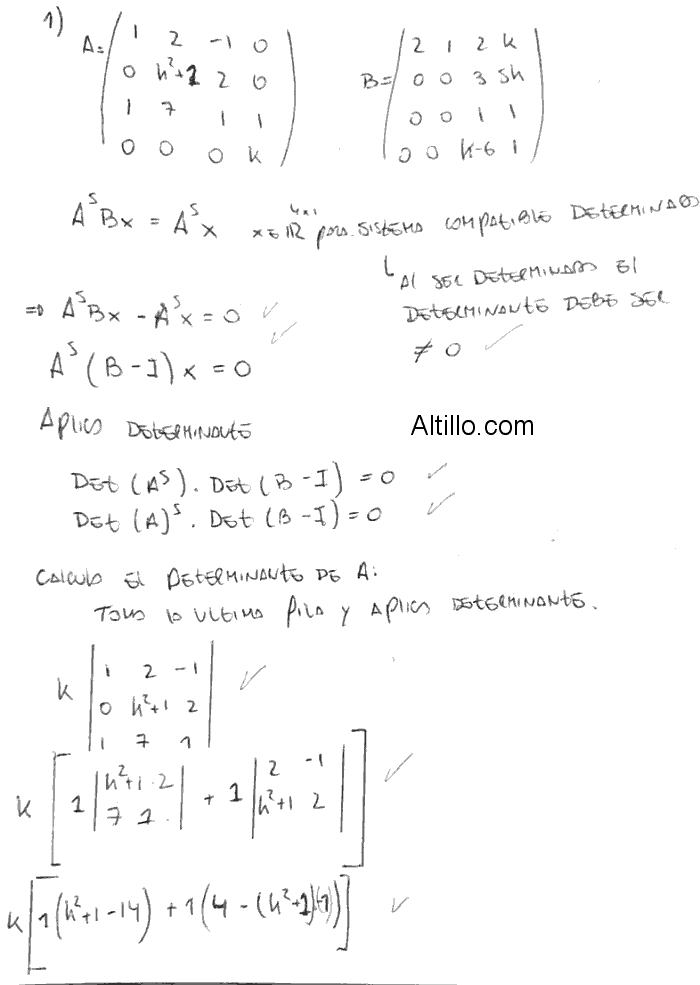 1) A = ( 1 2 -1 0     B = ( 2 1 2 k
0 k²+1 2 0     0 0 3 5k
1 7 1 1     0 0 1 1
0 0 0 k )     0 0 k-6 1 )
A⁵Bx = A⁵x   x ∈ ℝ⁴ˣ¹ para SISTEMA COMPATIBLE DETERMINADO
Al SER DETERMINADO El
DETERMINANTE DEBE SER
≠ 0
⇒ A⁵Bx - A⁵x = 0
A⁵(B - I)x = 0
Aplico DETERMINANTE
Altillo.com
Det(A⁵). Det(B - I) = 0
Det(A)⁵. Det(B - I) = 0
CALCULO El DETERMINANTE DE A:
TOMO la ULTIMA fila y Aplico DETERMINANTE.
k | 1 2 -1
0 k²+1 2
1 7 1 |
k [ 1 | k²+1 2 | + 1 | 2 -1 |
| 7 1 |     | k²+1 2 | ]
k [ 1(k²+1-14) + 1(4-(k²+1)(-1)) ]